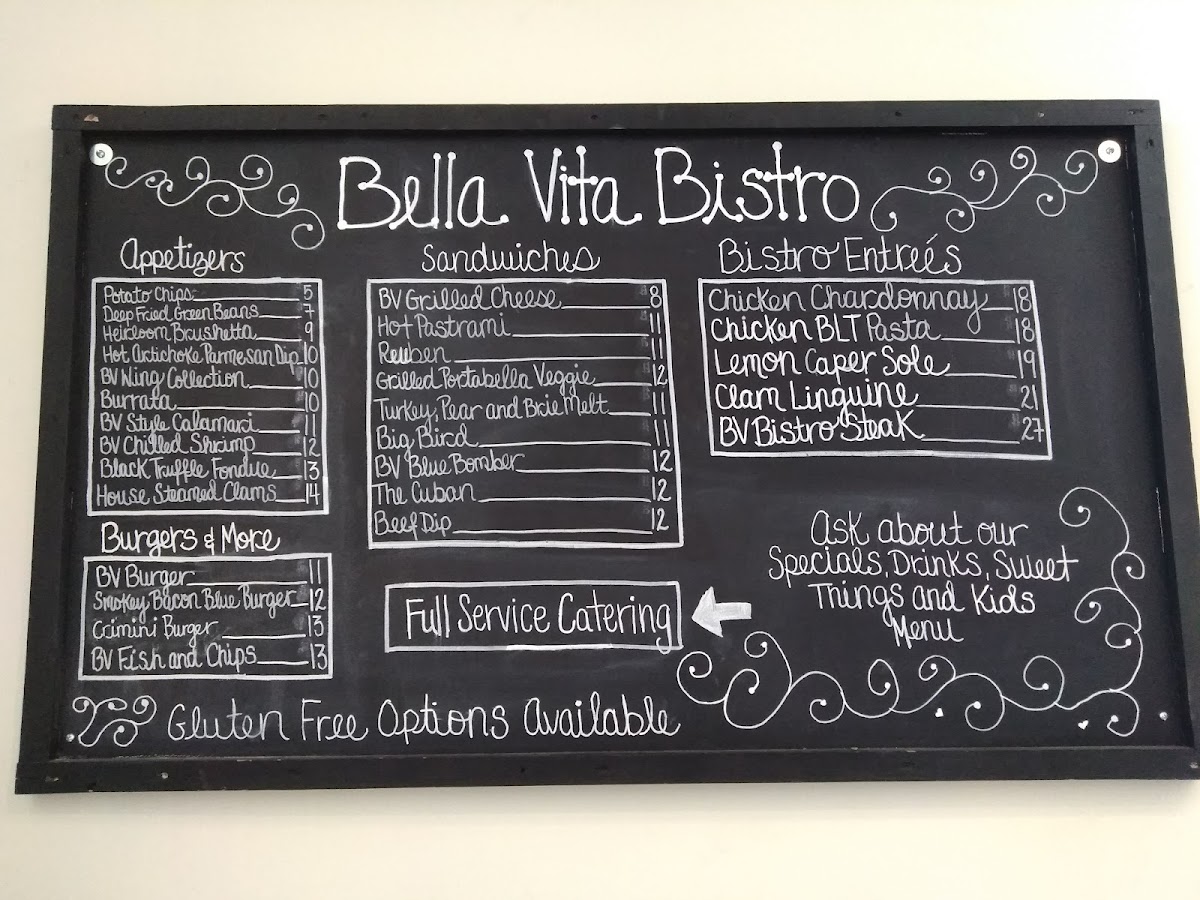 Bella Vita Bistro
Appetizers
Potato Chips 5
Deep Fried Green Beans 7
Heirloom Brushetta 9
Hot Artichoke Parmesan Dip 10
BV Wing Collection 10
Burrata 10
BV Style Calamari 11
BV Chilled Shrimp 12
Black Truffle Fondue 13
House Steamed Clams 14
Burgers & More
BV Burger 11
Smokey Bacon Blue Burger 12
Crimini Burger 13
BV Fish and Chips 13
Sandwiches
BV Grilled Cheese 8
Hot Pastrami 11
Reuben 11
Grilled Portabella Veggie 12
Turkey, Pear and Brie Melt 11
Big Bird 11
BV Blue Bomber 12
The Cuban 12
Beef Dip 12
Full Service Catering
Bistro Entreés
Chicken Chardonnay 18
Chicken BLT Pasta 18
Lemon Caper Sole 19
Clam Linguine 21
BV Bistro Steak 27
Ask about our
Specials, Drinks, Sweet
Things and Kids
Menu
Gluten Free Options Available